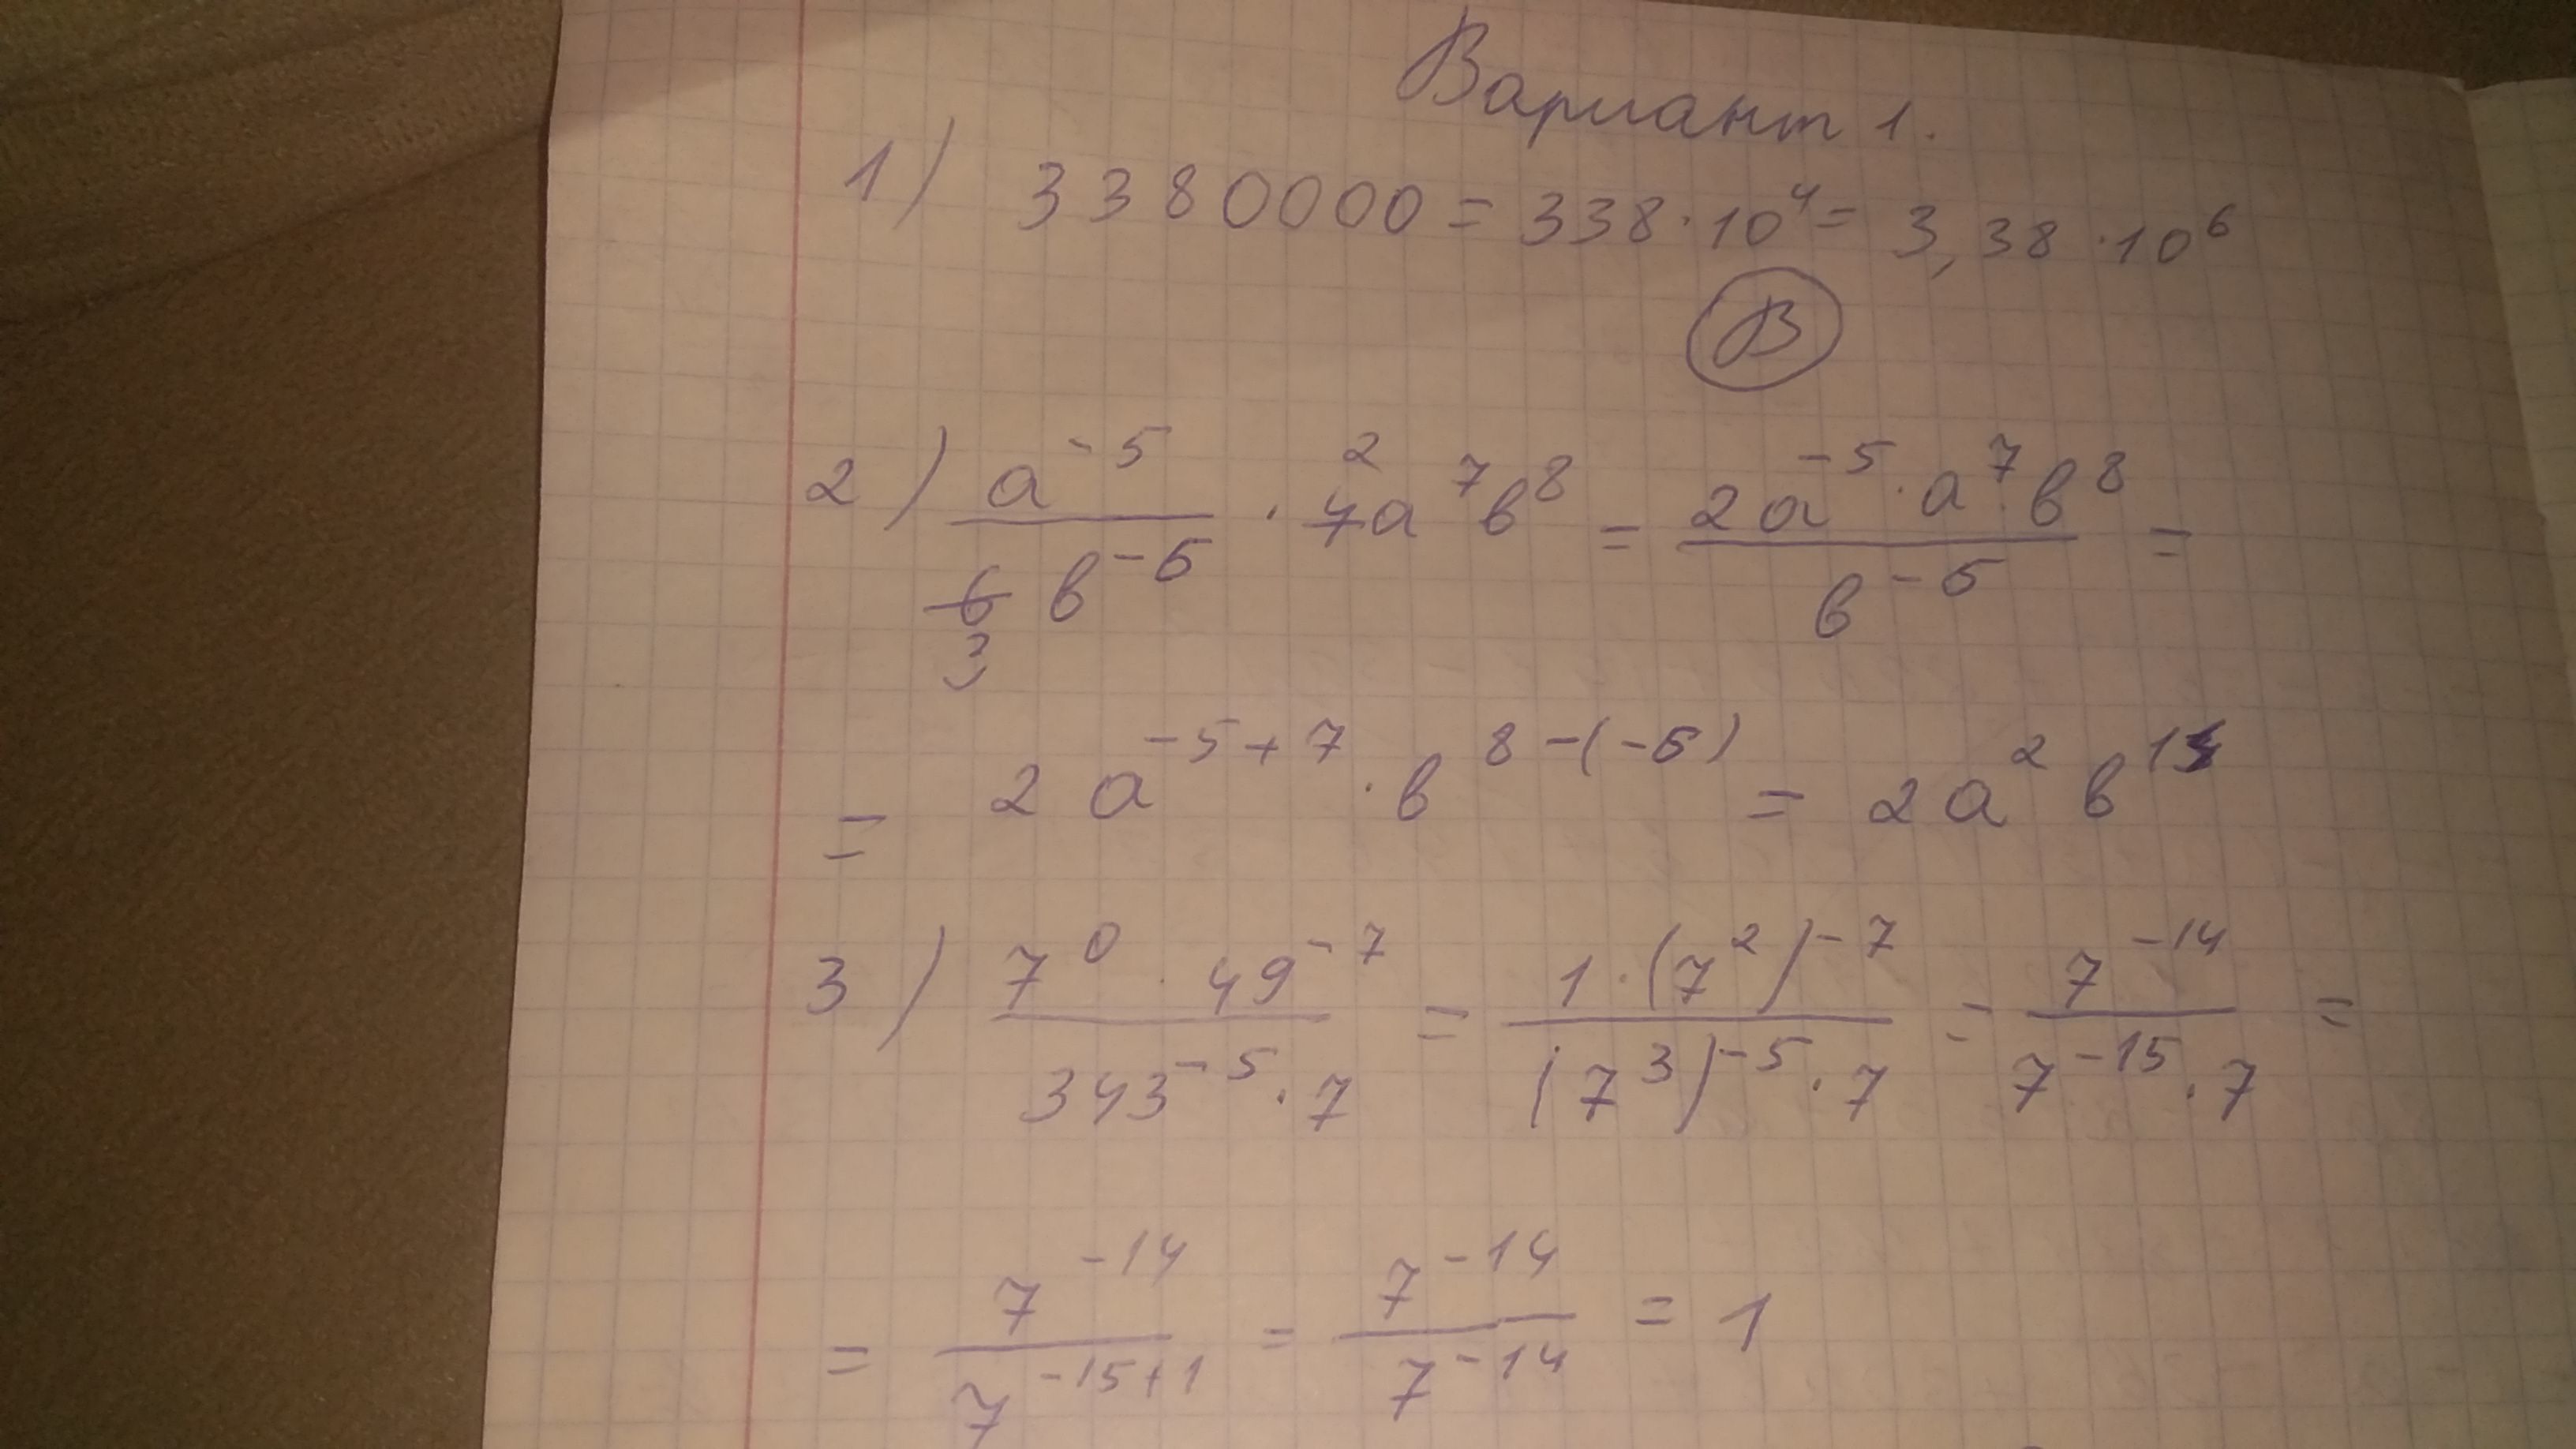 Вариант 1.
1) 3380000 = 338·10⁴ = 3,38·10⁶
В
2) a⁻⁵/6в⁻⁵ · 4a⁷в⁸ = 2a⁻⁵·a⁷в⁸/в⁻⁵ =
2
3
= 2a⁻⁵⁺⁷·в⁸⁻⁽⁻⁵⁾ = 2a²в¹³
3) 7⁰·49⁻⁷/343⁻⁵·7 = 1·(7²)⁻⁷/(7³)⁻⁵·7 = 7⁻¹⁴/7⁻¹⁵·7 =
= 7⁻¹⁴/7⁻¹⁵⁺¹ = 7⁻¹⁴/7⁻¹⁴ = 1